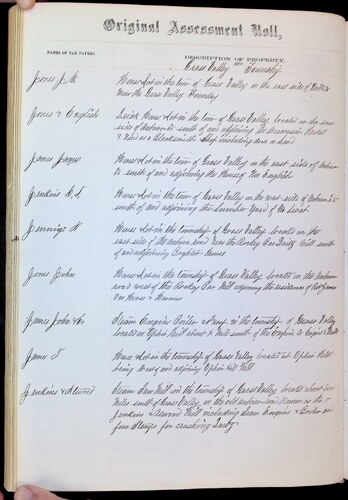 Original Assessment Roll,
NAMES OF TAX PAYERS.
DESCRIPTION OF PROPERTY.
Grass Valley Township
Jones J. M.
House & Lot in the town of Grass Valley in the east side of
near the Grass Valley Foundry
Jones & English
Brick House & Lot in the town of Grass Valley located on the east
side of Auburn St south of and adjoining the Wisconsin Hotel
& Used as a Blacksmith Shop including
James
House & Lot in the town of Grass Valley in the east side of Auburn
St south of and adjoining the House of Wm English
Jenkins
House & Lot in the town of Grass Valley in the west side of Auburn St
south of and adjoining the Lumber Yard of
Jennings N
House & Lot in the township of Grass Valley located on the
east side of the Auburn road near the Rocky Bar Quartz Mill south
of and adjoining House
Jones John
House & Lot in the township of Grass Valley located in the Auburn
road west of the Rocky Bar Mill the residence of
House &
James John & Co
Steam Engine Boiler & Pump in the township of Grass Valley
located on Ophir Hill about ½ Mile south of the Empire Co Engine &
James T
House & Lot in the township of Grass Valley located at Ophir Hill
being west of and adjoining Ophir Hill Mill
Jenkins & Atwood
Steam Saw Mill in the township of Grass Valley located about four
Miles south of Grass Valley in the old Auburn road known as the
Jenkins & Atwood Mill including Steam Engine & Boiler
four Stamps for crushing Quartz